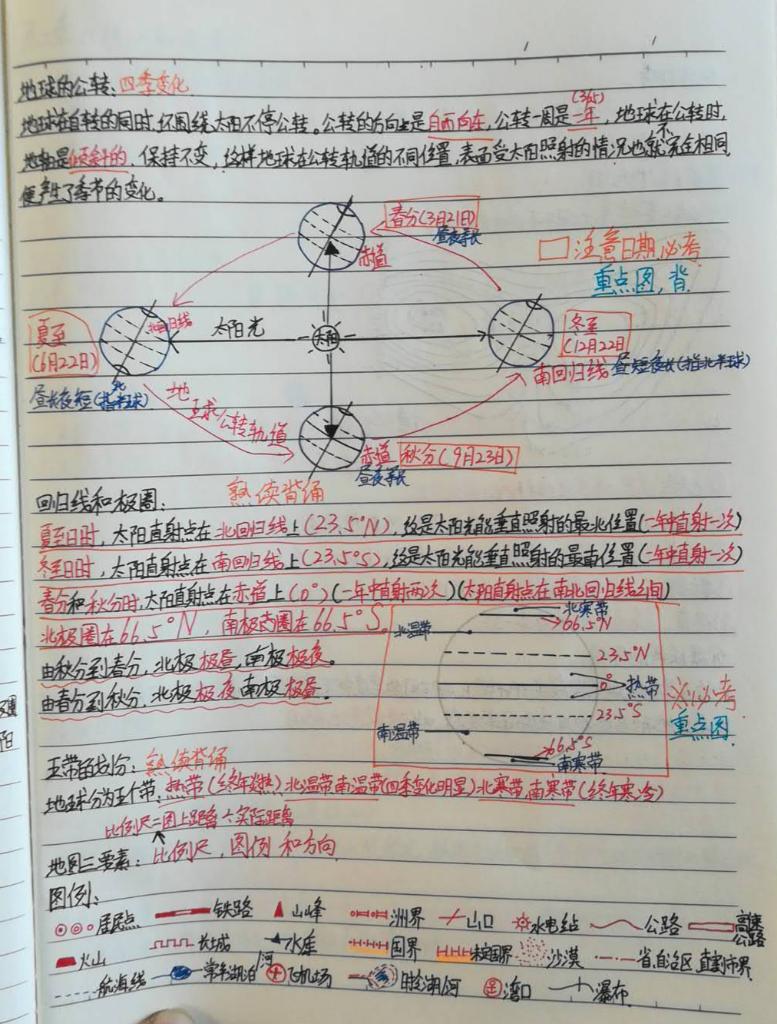 地球的公转：四季变化
地球在自转的同时，环围绕太阳不停公转。公转的方向也是自西向东，公转一周是一年(365)，地球在公转时，
地轴是倾斜的，保持不变，这样地球在公转轨道的不同位置，表面受太阳照射的情况也就不完全相同，
便产生了季节的变化。
春分(3月21日)
昼夜等长
赤道
□注意日期必考
重点图，背
夏至
(6月22日)
北回归线
太阳光
太阳
冬至
(12月22日
南回归线 昼短夜长(指北半球)
昼长夜短(指北半球)
地
球公转轨道
赤道 秋分(9月23日)
昼夜等长
熟读背诵
回归线和极圈：
夏至日时，太阳直射点在北回归线上(23.5°N)，这是太阳光能垂直照射的最北位置(一年中直射一次)
冬至日时，太阳直射点在南回归线上(23.5°S)，这是太阳光能垂直照射的最南位置(一年中直射一次)
春分和秋分时，太阳直射点在赤道上(0°)(一年中直射两次)(太阳直射点在南北回归线之间)
北极圈在66.5°N，南极圈在66.5°S。
由秋分到春分，北极极昼，南极极夜。
由春分到秋分，北极极夜南极极昼。
北寒带
66.5°N
北温带
23.5°N
0°
热带
23.5°S
南温带
66.5°S
南寒带
※必考
重点图
五带的划分：熟读背诵
地球分为五个带，热带(终年炎热)北温带南温带(四季变化明显)北寒带，南寒带(终年寒冷)
比例尺=图上距离÷实际距离
地图三要素：比例尺，图例和方向
图例：
居民点 铁路 山峰 洲界 山口 水电站 公路 高速公路
火山 长城 水库 国界 未定国界 沙漠 省、自治区、直辖市界
航海线 常年湖泊河 飞机场 时令湖河 港口 瀑布